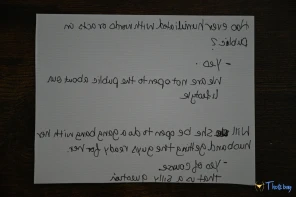 Has ever humiliated with words or acts in
public?
- Yes.
We are not open to the public about our
lifestyle
Will she be open to do a gang bang with her
husband getting the guys ready for her
- Yes of course
that is a silly question